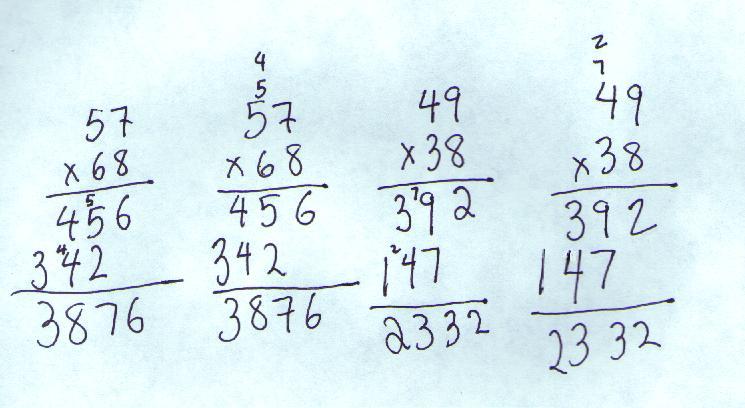 57
x 68
5
456
4
342
3876
4
5
57
x 68
456
342
3876
49
x 38
7
392
2
147
2332
2
7
49
x 38
392
147
2332